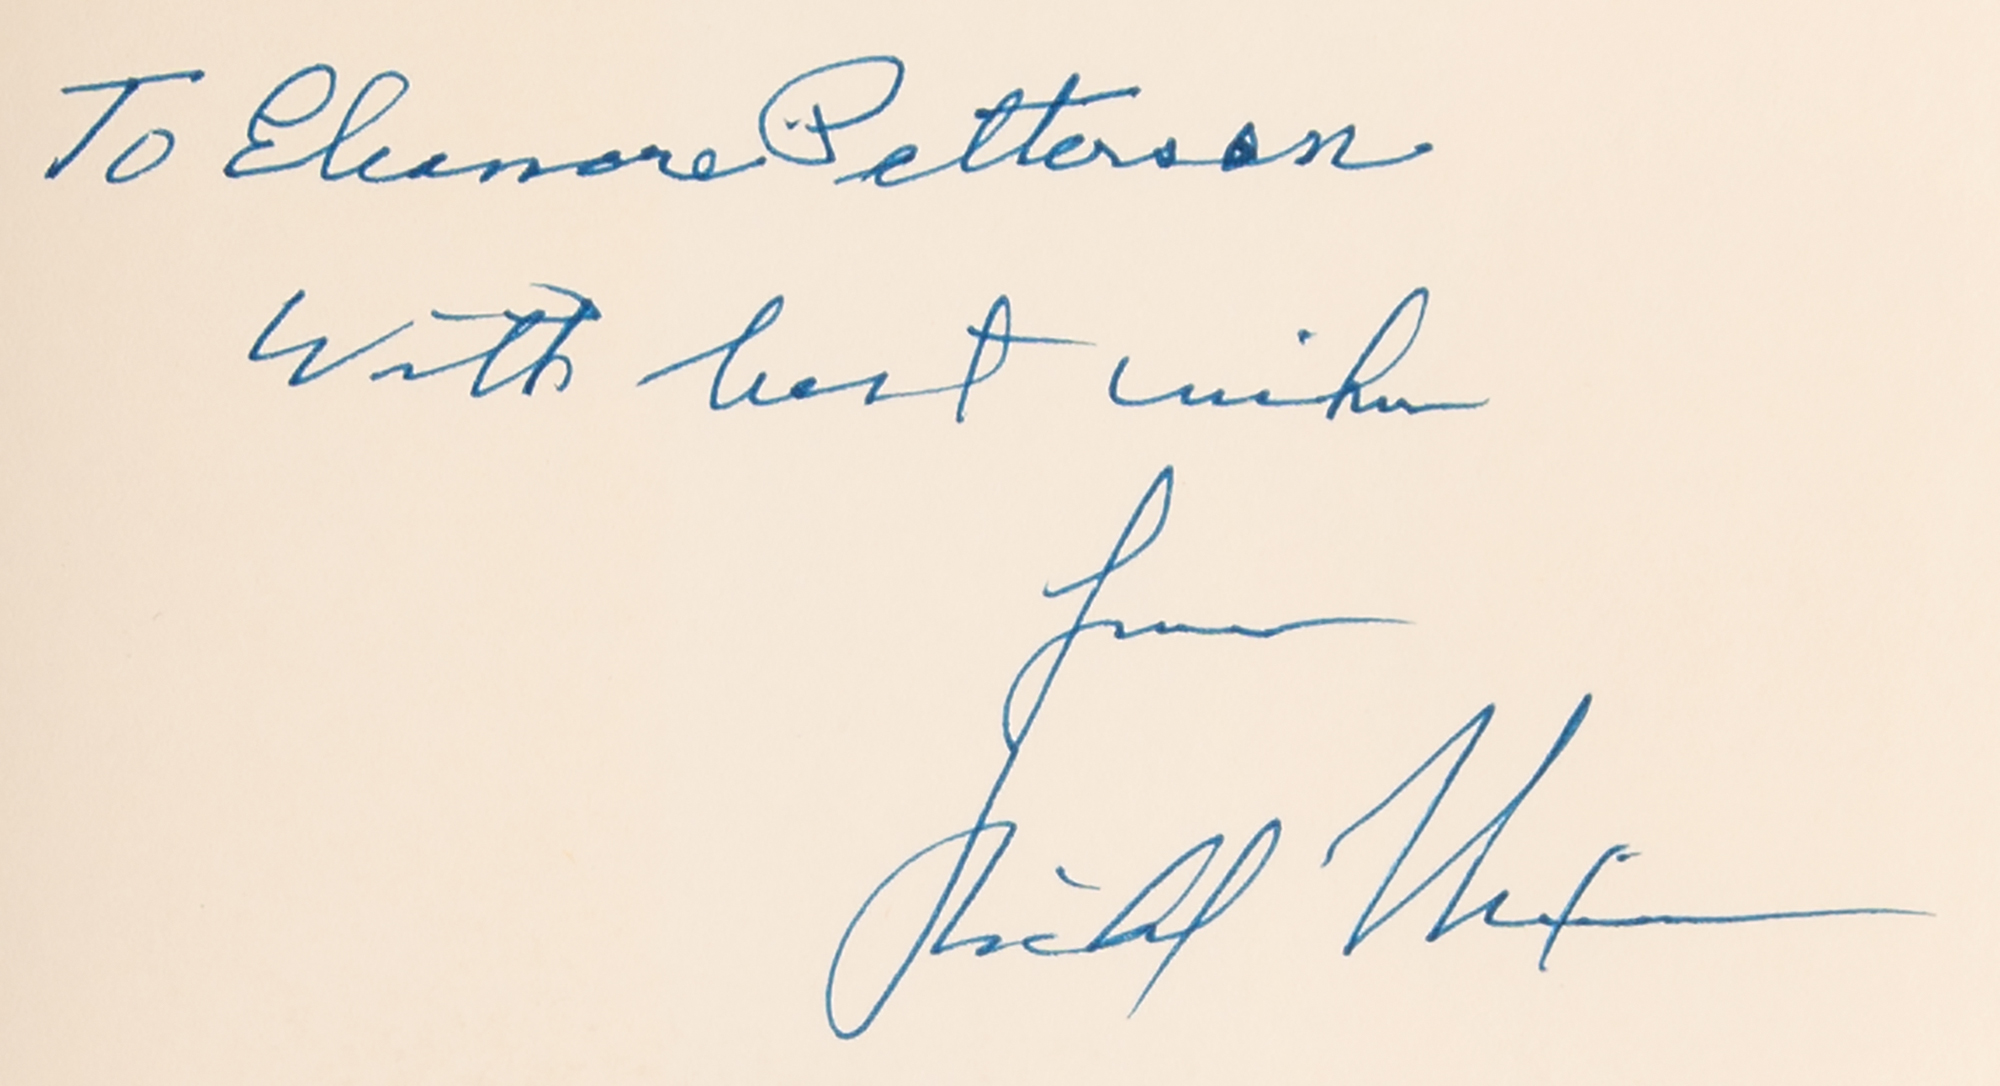 To Eleanore Petterson
With best wishes
from
Richard Nixon